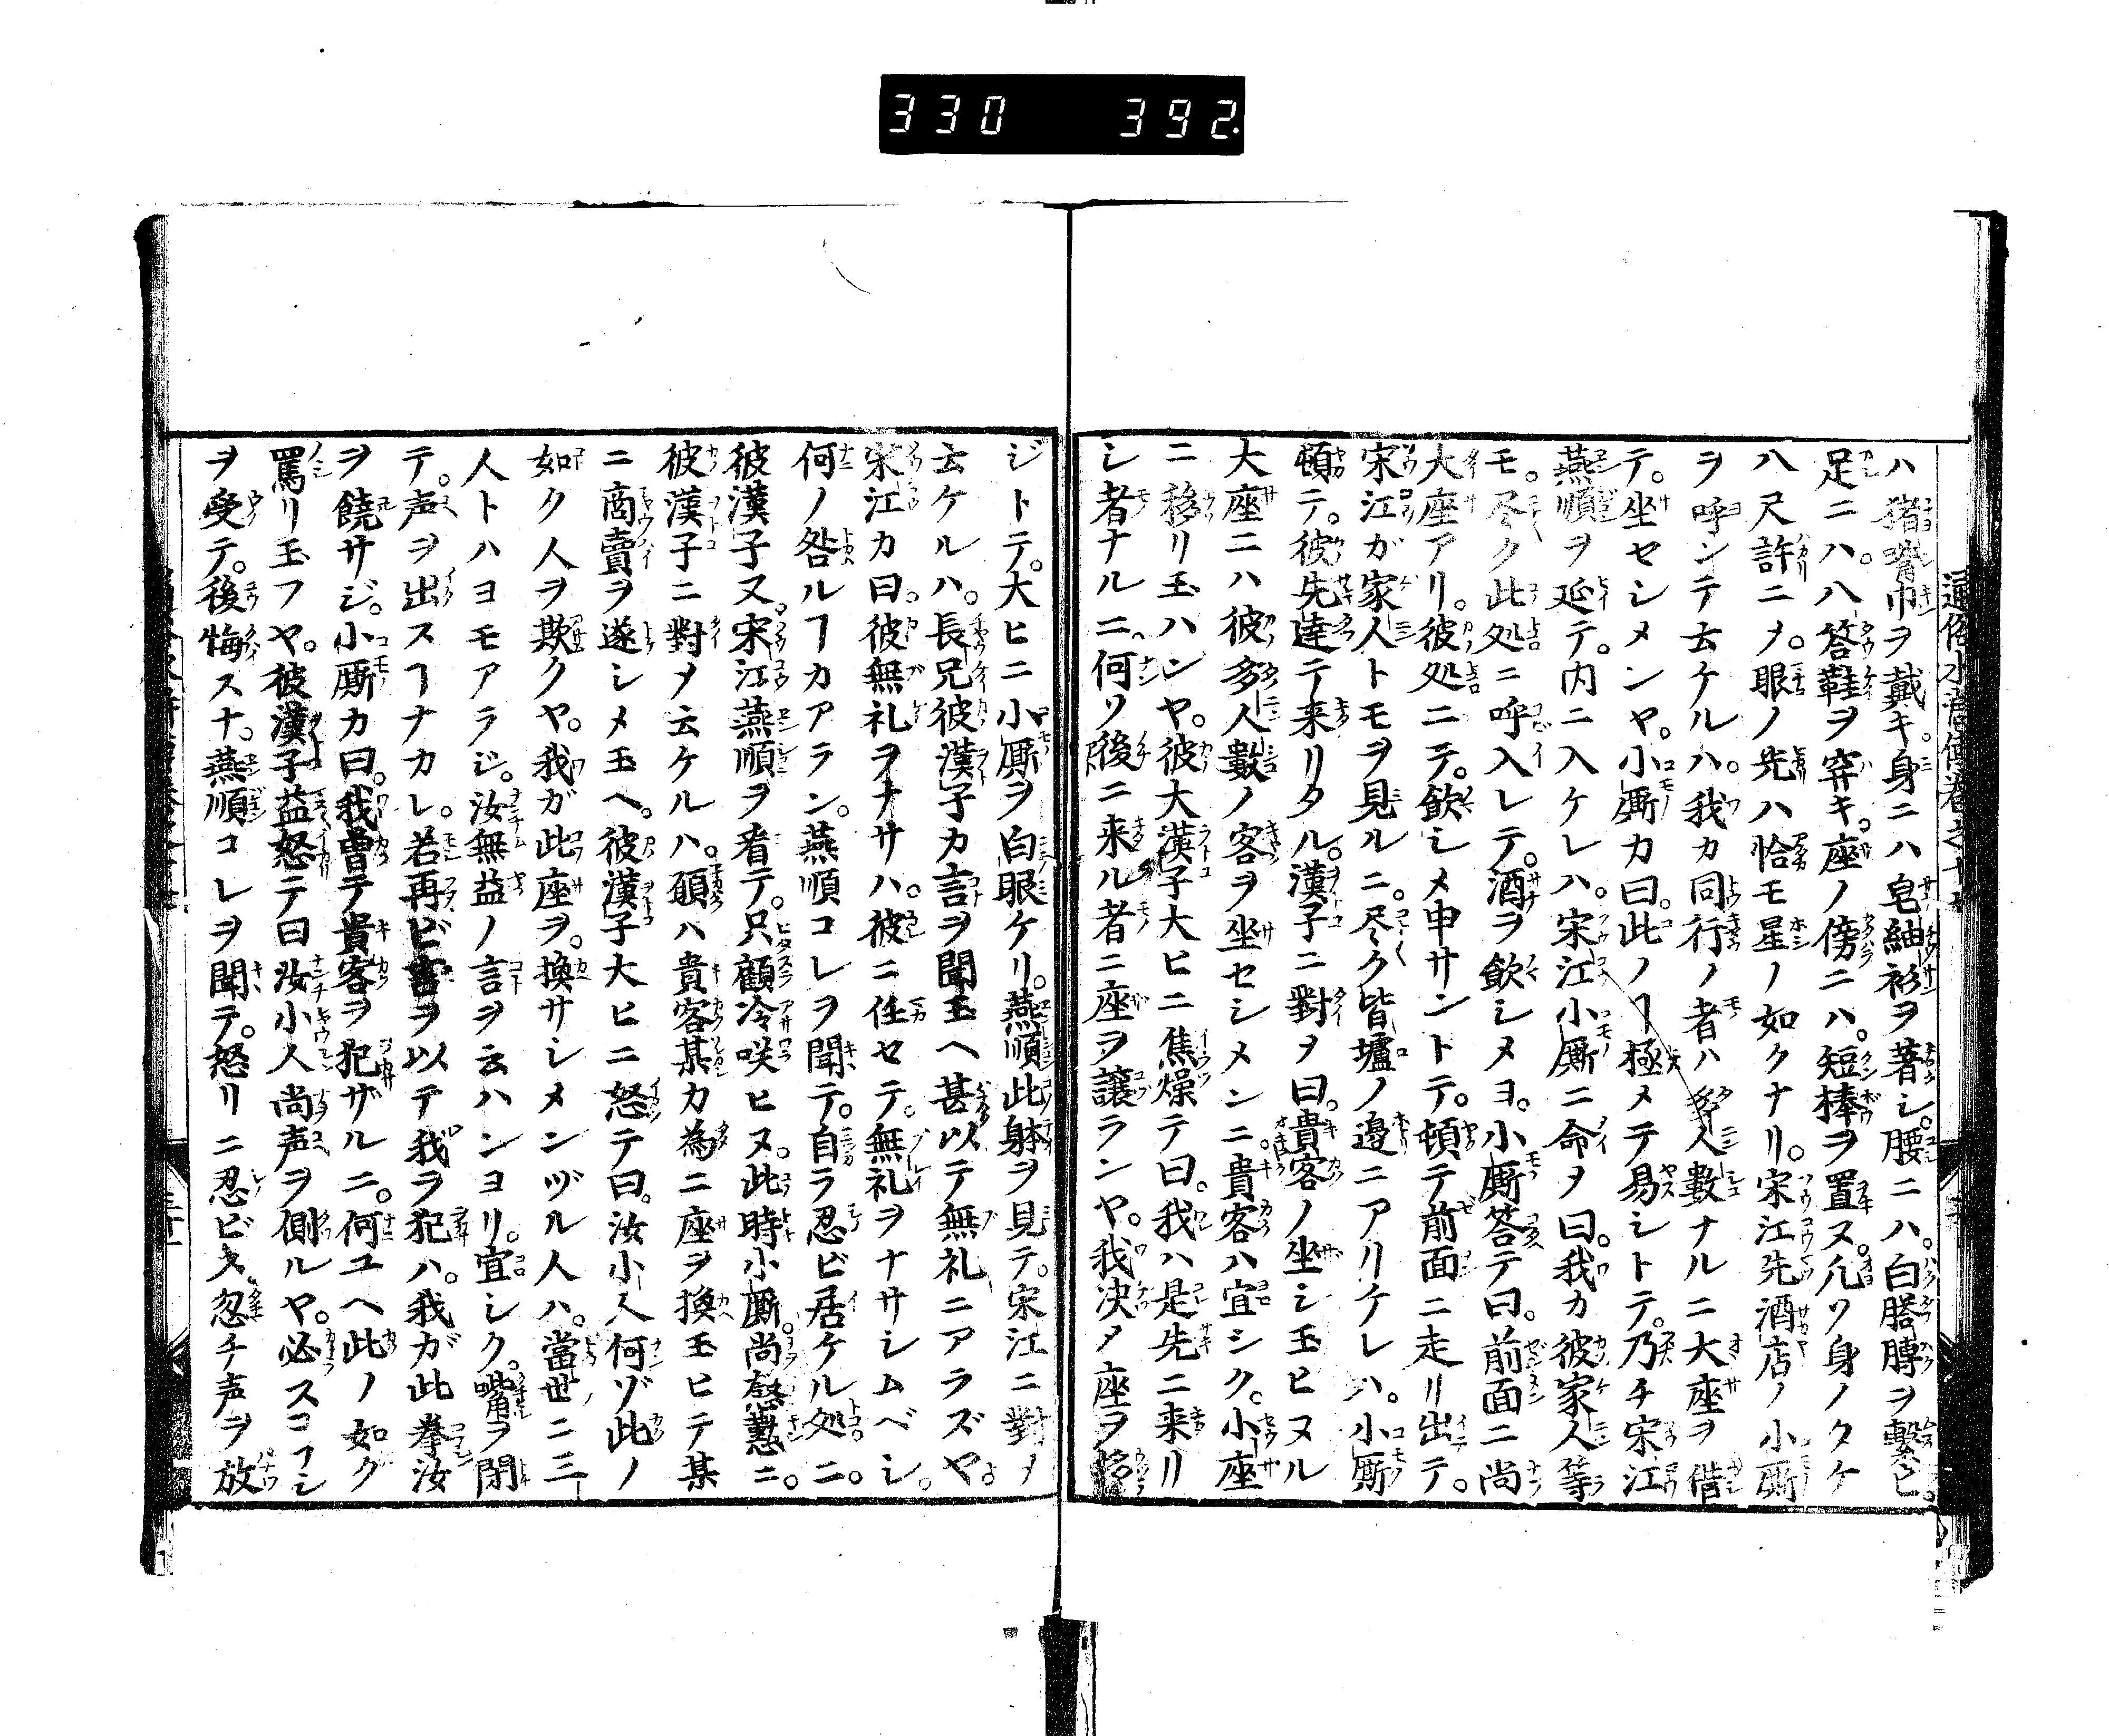 330 392
通俗水滸傳巻之十
ハ猪嘴巾ヲ戴キ。身ニハ皂紬衫ヲ著シ。腰ニハ。白搭膊ヲ繫ヒ。
足ニハ。八答鞋ヲ穿キ。座ノ傍ニハ。短棒ヲ置ヌ。凢ソ身ノタケ
八尺許ニメ。眼ノ光ハ恰モ星ノ如クナリ。宋江先酒店ノ小厮
ヲ呼ンテ云ケルハ。我カ同行ノ者ハ多人數ナルニ大座ヲ借
テ。坐セシメンヤ。小厮カ曰。此ノヿ極メテ易シトテ。乃チ宋江
燕順ヲ延テ。内ニ入ケレハ。宋江小厮ニ命メ曰。我カ彼家人等
モ。尽ク此処ニ呼入レテ。酒ヲ飲シメヨ。小厮答テ曰。前面ニ尚
大座アリ。彼処ニテ。飲シメ申サントテ。頓テ前面ニ走リ出テ。
宋江が家人トモヲ見ルニ。尽ク皆壚ノ邉ニアリケレハ。小厮
頓テ。彼先達テ来リタル。漢子ニ對メ曰。貴客ノ坐シ玉ヒヌル
大座ニハ彼多人數ノ客ヲ坐セシメンニ。貴客ハ宜シク。小座
ニ移リ玉ハンヤ。彼大漢子大ヒニ焦燥テ曰。我ハ是先ニ来リ
シ者ナルニ。何ソ後ニ来ル者ニ座ヲ讓ランヤ。我决メ座ヲ移
ジトテ。大ヒニ小厮ヲ白眼ケリ。燕順此躰ヲ見テ。宋江ニ對メ
云ケルハ。長兄彼漢子カ言ヲ聞玉ヘ甚以テ無礼ニアラズヤ
宋江カ曰。彼無礼ヲナサハ。彼ニ任セテ。無礼ヲナサシムベシ。
何ノ咎ルヿカアラン。燕順コレヲ聞テ。自ラ忍ビ居ケル処ニ。
彼漢子又。宋江燕順ヲ看テ。只顧冷咲ヒヌ。此時小厮。尚慇懃ニ。
彼漢子ニ對メ云ケルハ。願ハ貴客某カ為ニ座ヲ換玉ヒテ某
ニ商賣ヲ遂シメ玉ヘ。彼漢子大ヒニ怒テ曰。汝小人何ゾ此ノ
如ク人ヲ欺クヤ。我ガ此座ヲ。換サシメンヅル人ハ。當世ニ三
人トハヨモアラジ。汝無益ノ言ヲ云ハンヨリ。宜シク。嘴ヲ閉
テ。声ヲ出スヿナカレ。若再ビ言ヲ以テ我ヲ犯ハ。我ガ此拳汝
ヲ饒サジ。小厮カ曰。我曽テ貴客ヲ犯ザルニ。何ユヘ此ノ如ク
罵リ玉フヤ。彼漢子益怒テ曰汝小人尚声ヲ側ルヤ。必スコフシ
ヲ受テ。後悔スナ。燕順コレヲ聞テ。怒リニ忍ビズ。忽チ声ヲ放